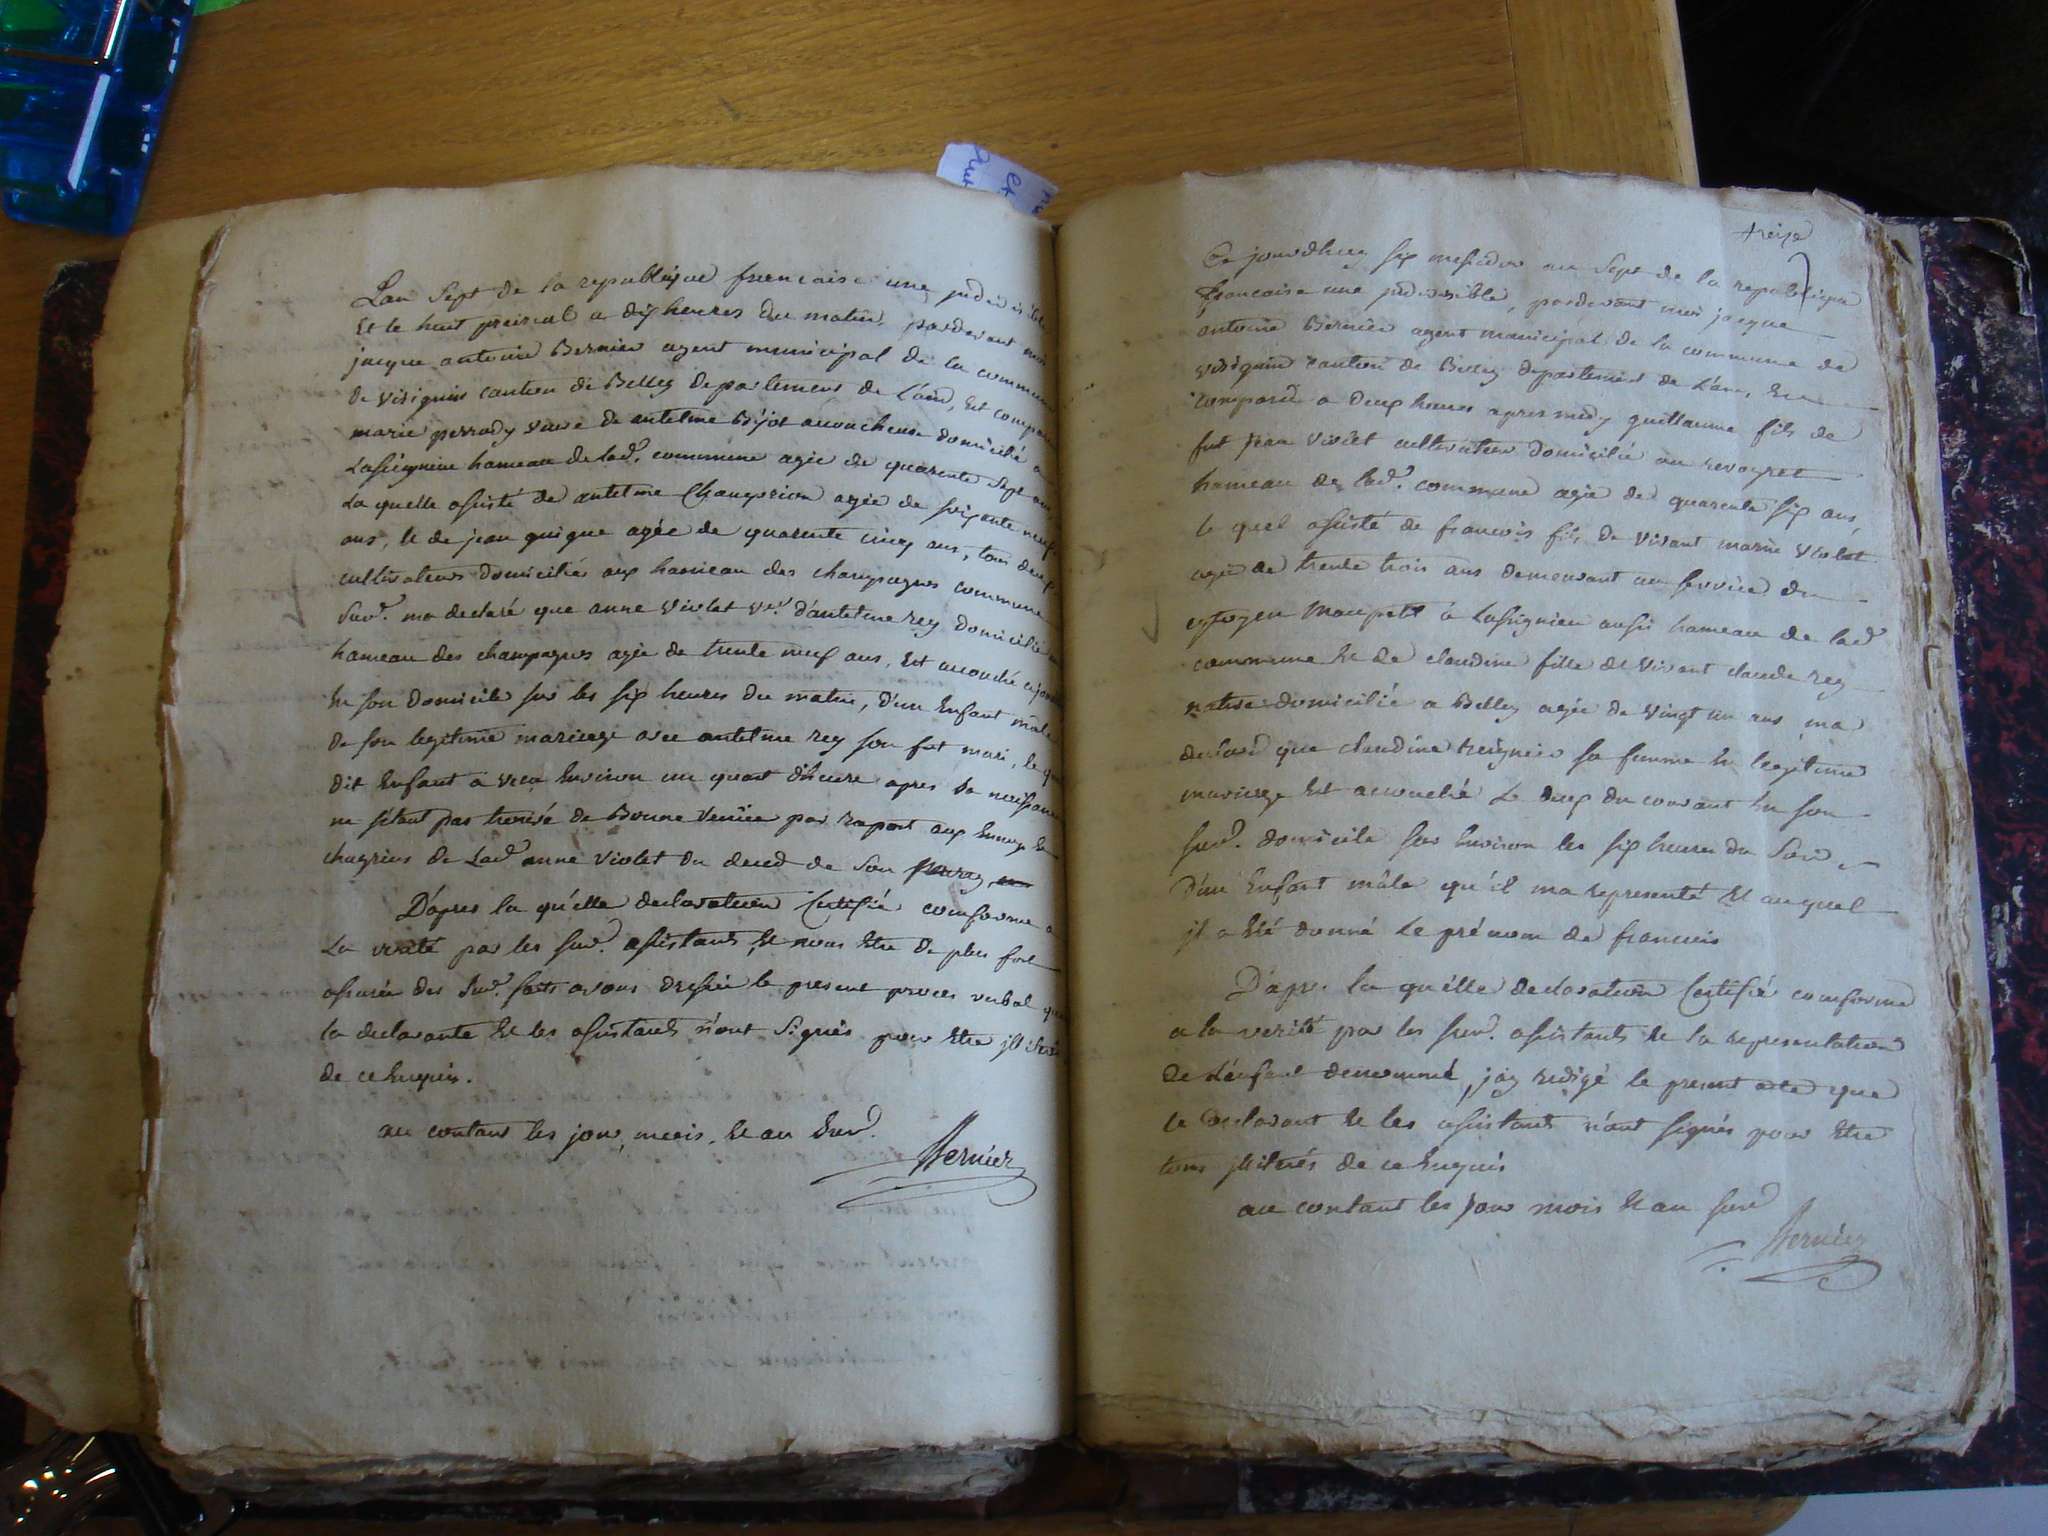 Lan Sept de la republique francaise une jndivisible
Et le huit preireal a dix heures du matin, pardevant moi
jacque antoine Bernier agent municipal de la commune
de virignin canton de Belley departement de L'ain, Est comparu
marie perrody veuve de antelme Bijot accoucheuse domicilié a
Lassignieu hameau de lad. commune agée de quarente Sept ans
La quelle assisté de antelme Champrion agée de soixante neuf
ans, et de jean guigue agée de quarente cinq ans, tous deux
cultivateurs domiciliés aux hameau des champagnes commune
Susd. ma declaré que anne Violet vve d'antelme rey domicilié au
hameau des champagnes agée de trente neuf ans, Est accouché cejour
En son domicile sur les six heures du matin, d'un Enfant mâle
de son legitime mariage avec antelme rey son fut mari, le quel
dit Enfant a vecu Environ un quart d'heure apres sa naissance
ne s'étant pas trouvé de Bonne venüe par raport aux Ennuys Et
chagrins de Lad. anne Violet du deced de son
D'apres la qu'elle declaration Certifié conforme a
La verité par les susd. assistants, Et nous Etre de plus fort
assurée des Susd. faits avons dressée le present procès verbal que
la declarante Et les assistants n'ont Signés pour Etre jllitérés
de ce Enquis.
au contant les jour, mois, Et an Susd.
Bernier
treize
Ce jourdhuy six messidor an Sept de la republique
francaise une jndivisible, pardevant moi jacque
antoine Bernier agent municipal de la commune de
virignin canton de Belley departement de L'ain, Est
comparu a deux heures apres midy guillaume fils de
fut jean violet cultivateur domicilié au revoyret
hameau de lad. commune agée de quarente six ans,
le quel assisté de francois fils de vivant marin violet
agée de trente trois ans demeurant au service du
cytoyen Maupetit à Lassignieu aussi hameau de lad
commune Et de claudine fille de vivant claude rey
native domiciliée a Belley agée de vingt un ans ma
declaré que claudine treignier sa femme En legitime
mariage Est accouché Le deux du courant En son
susd. domicile sur Environ les six heures du Soir,
D'un Enfant mâle qu'il ma representé Et auquel
jl a Eté donné Le prénom de francois
D'apr. la qu'elle declaration Certifié conforme
a la verité par les susd. assistants Et la representation
de L'enfant denommé, j'ay redigé le present acte que
le Declarant Et les assistants n'ont signés pour Etre
tous jllitérés de ce Enquis
au contant les jour mois Et an susd
Bernier